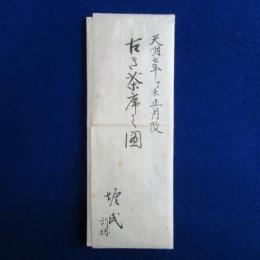 天明七年丁未正月改
古き茶席之図
堀氏